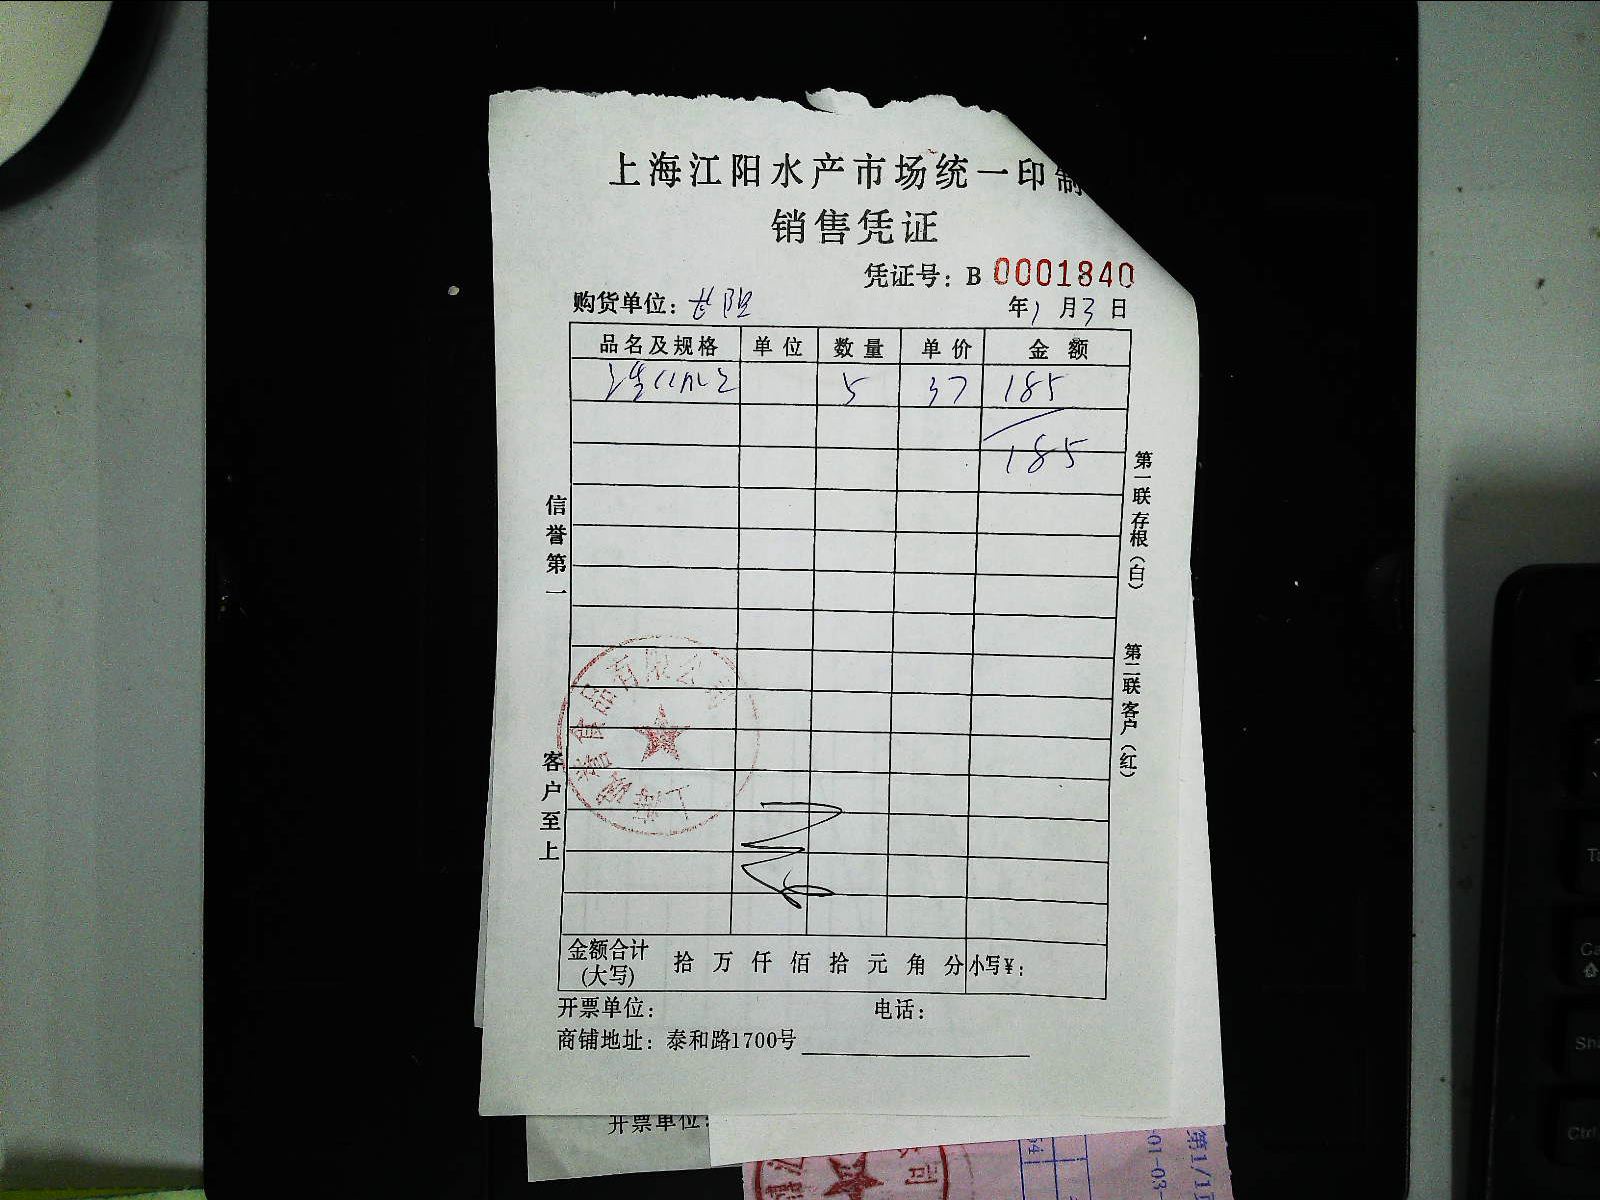 上海江阳水产市场统一印制
销售凭证
凭证号：B 0001840
购货单位：
年1月3日
品名及规格 单位 数量 单价 金额
5 37 185
185
信誉第一
客户至上
第一联存根（白）
第二联客户（红）
食品有限公司
上海
金额合计（大写） 拾 万 仟 佰 拾 元 角 分 小写¥：
开票单位： 电话：
商铺地址：泰和路1700号
开票单位：
司
01-03-
第1/1
Ctrl